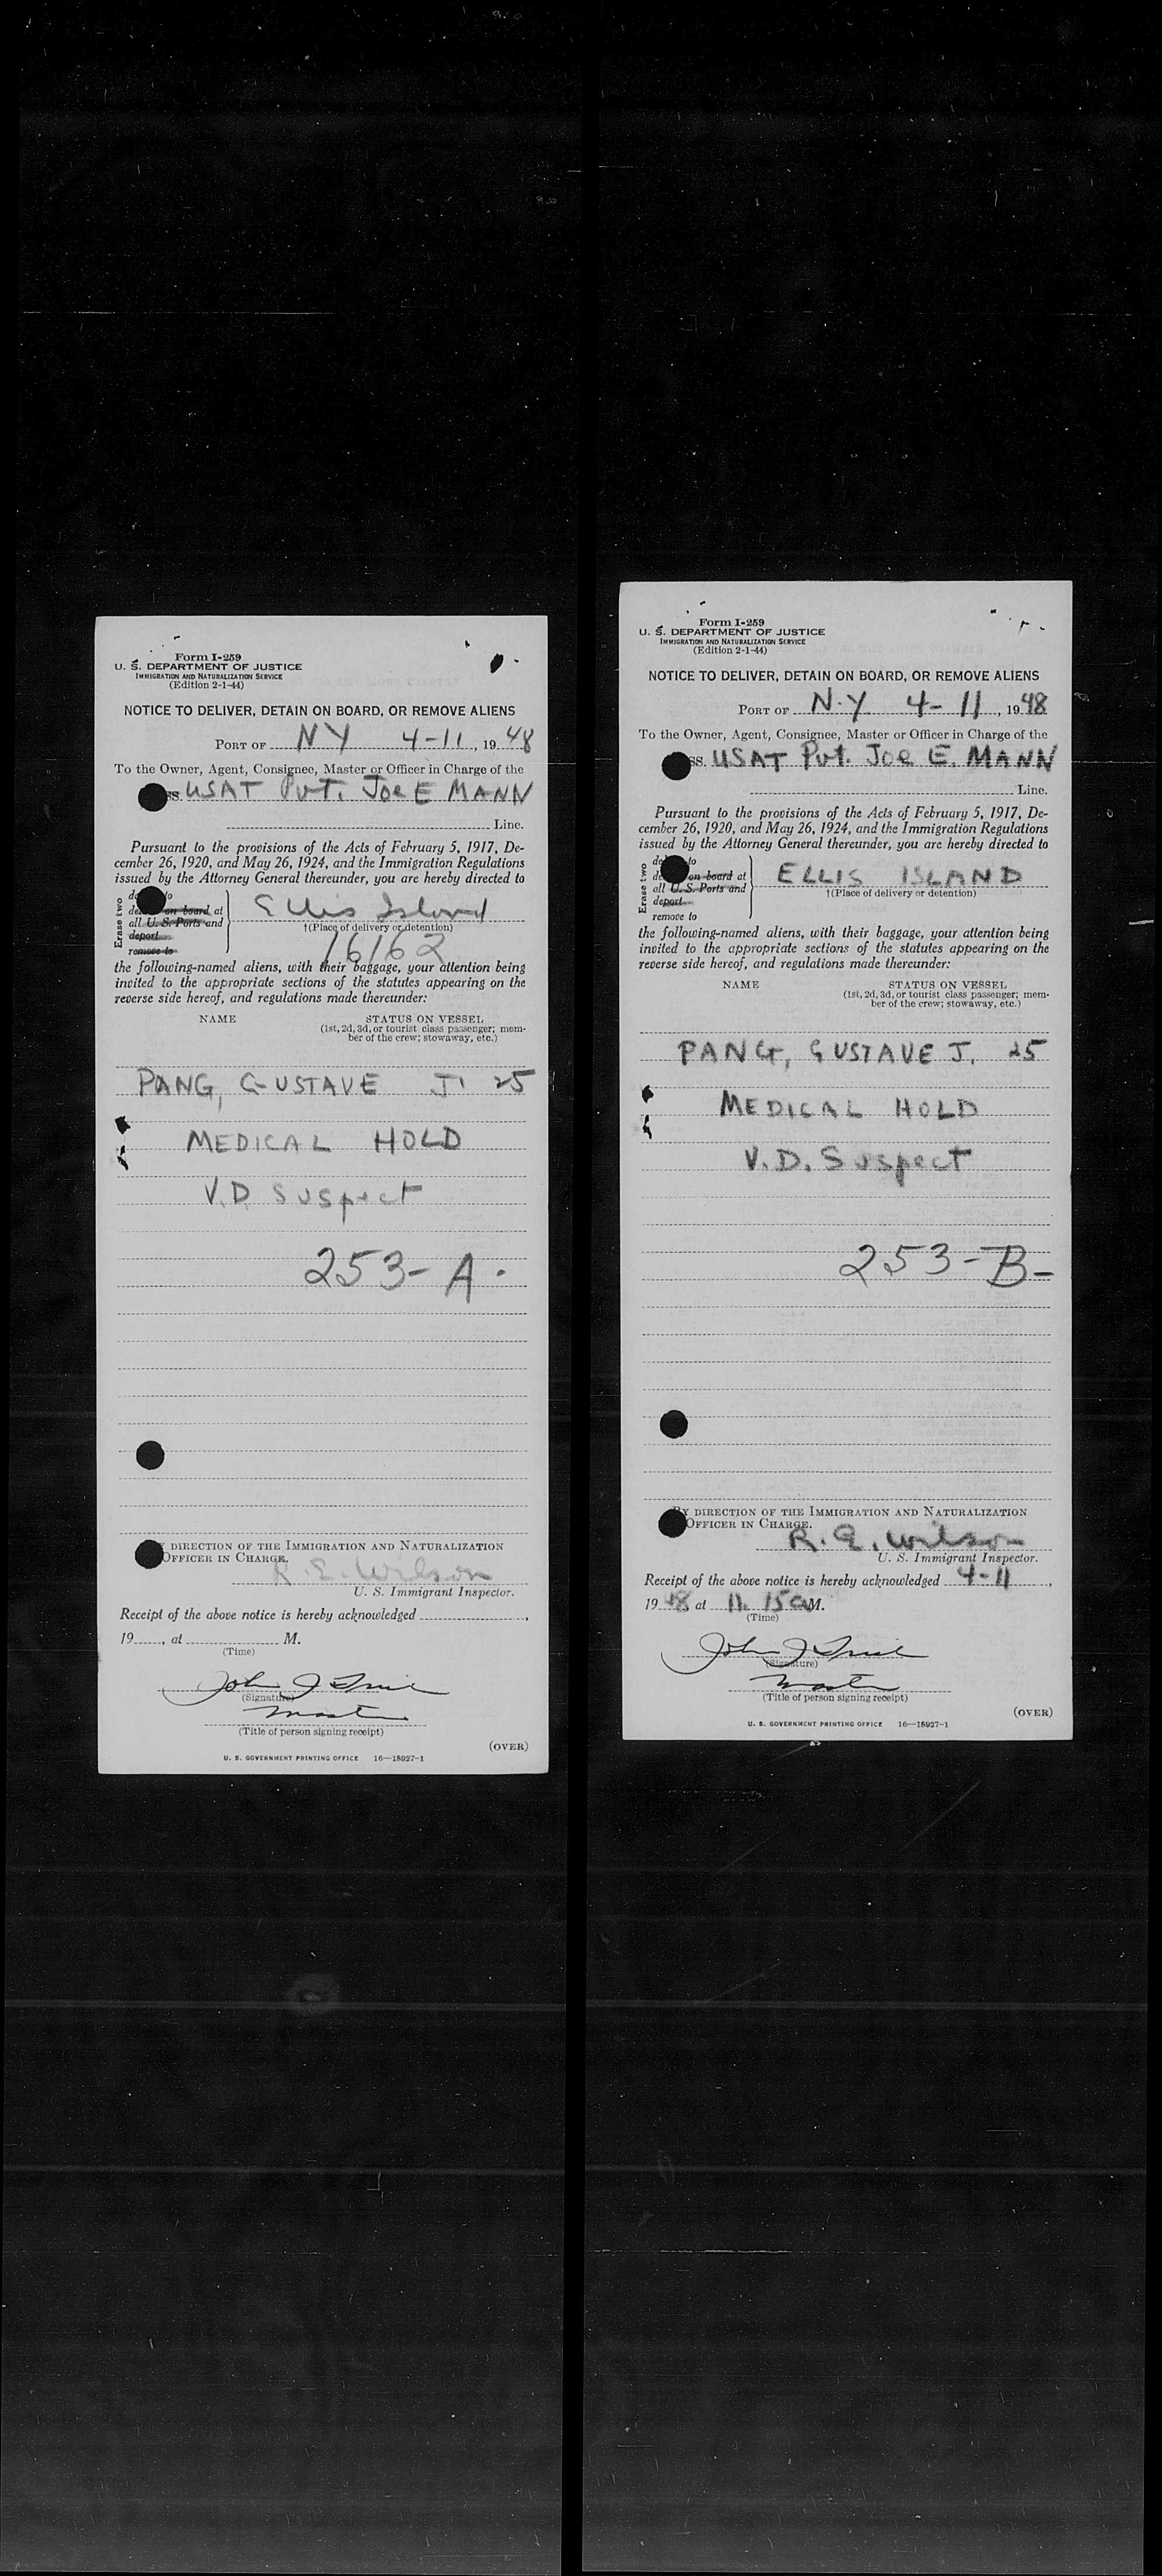 Form I-259
U. S. DEPARTMENT OF JUSTICE
IMMIGRATION AND NATURALIZATION SERVICE
(Edition 2-1-44)
NOTICE TO DELIVER, DETAIN ON BOARD, OR REMOVE ALIENS
PORT OF NY 4-11, 1948
To the Owner, Agent, Consignee, Master or Officer in Charge of the
SS. USAT Pvt. JOE E MANN
Line.
Pursuant to the provisions of the Acts of February 5, 1917, De-
cember 26, 1920, and May 26, 1924, and the Immigration Regulations
issued by the Attorney General thereunder, you are hereby directed to
Erase two
to
on board at
all U. S. Ports and
deport
remove to
Ellis Island
†(Place of delivery or detention)
16162
the following-named aliens, with their baggage, your attention being
invited to the appropriate sections of the statutes appearing on the
reverse side hereof, and regulations made thereunder:
NAME STATUS ON VESSEL
(1st, 2d, 3d, or tourist class passenger; mem-
ber of the crew; stowaway, etc.)
PANG, GUSTAVE J. 25
MEDICAL HOLD
V.D Suspect
253-A.
DIRECTION OF THE IMMIGRATION AND NATURALIZATION
OFFICER IN CHARGE.
R. E. Wilson
U. S. Immigrant Inspector.
Receipt of the above notice is hereby acknowledged ,
19 , at M.
(Time)
John J
(Signature)
Master
(Title of person signing receipt)
(OVER)
U. S. GOVERNMENT PRINTING OFFICE 16—18927-1
Form I-259
U. S. DEPARTMENT OF JUSTICE
IMMIGRATION AND NATURALIZATION SERVICE
(Edition 2-1-44)
NOTICE TO DELIVER, DETAIN ON BOARD, OR REMOVE ALIENS
PORT OF N.Y. 4-11, 1948
To the Owner, Agent, Consignee, Master or Officer in Charge of the
SS. USAT Pvt. JOE E. MANN
Line.
Pursuant to the provisions of the Acts of February 5, 1917, De-
cember 26, 1920, and May 26, 1924, and the Immigration Regulations
issued by the Attorney General thereunder, you are hereby directed to
Erase two
to
on board at
all U. S. Ports and
deport
remove to
ELLIS ISLAND
†(Place of delivery or detention)
the following-named aliens, with their baggage, your attention being
invited to the appropriate sections of the statutes appearing on the
reverse side hereof, and regulations made thereunder:
NAME STATUS ON VESSEL
(1st, 2d, 3d, or tourist class passenger; mem-
ber of the crew; stowaway, etc.)
PANG, GUSTAVE J. 25
MEDICAL HOLD
V.D. Suspect
253-B-
BY DIRECTION OF THE IMMIGRATION AND NATURALIZATION
OFFICER IN CHARGE.
R. E. Wilson
U. S. Immigrant Inspector.
Receipt of the above notice is hereby acknowledged 4-11,
1948, at 11.15 AM.
(Time)
John J
(Signature)
Master
(Title of person signing receipt)
(OVER)
U. S. GOVERNMENT PRINTING OFFICE 16—18927-1